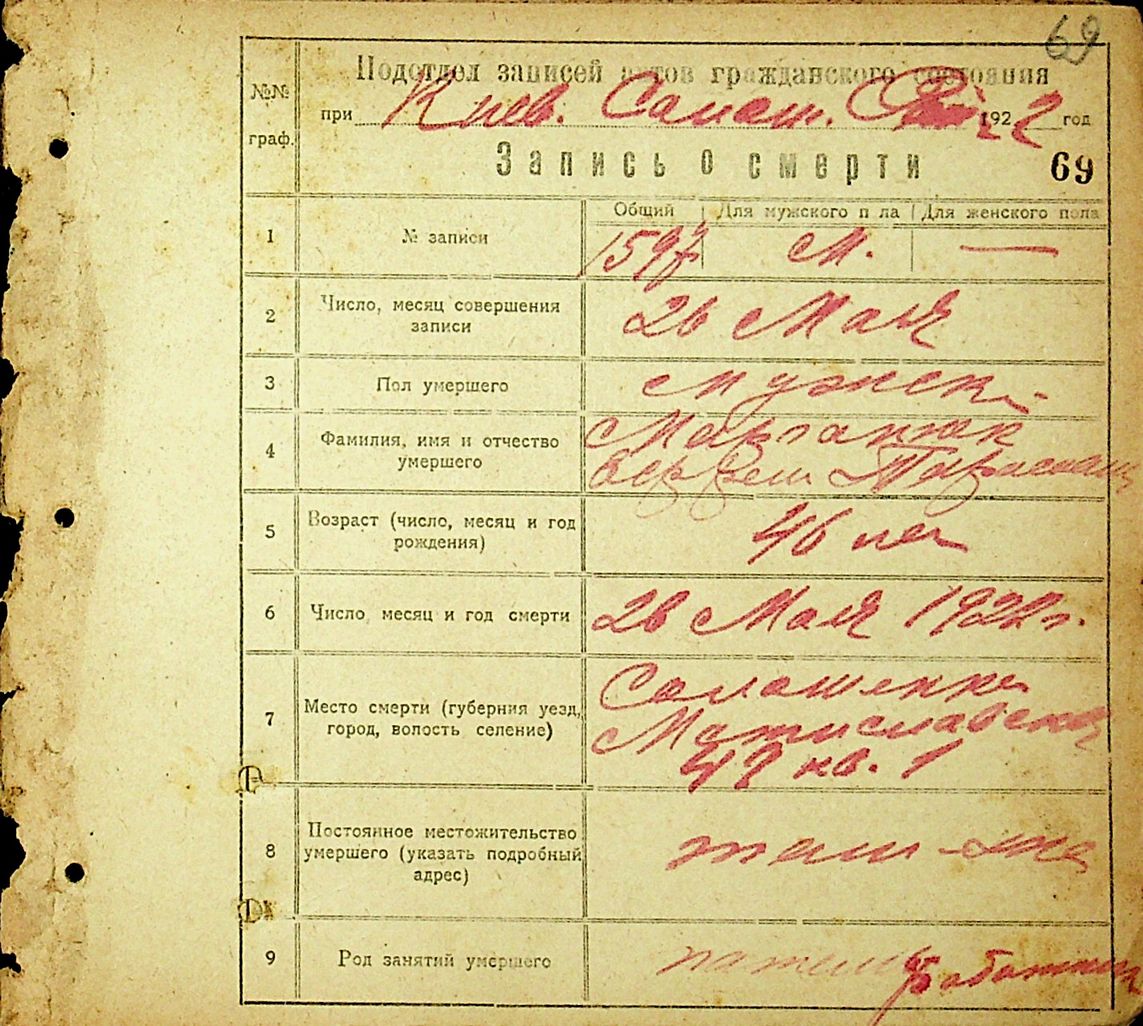 69
№№ граф.
Подотдел записей актов гражданского состояния
при Киев. Солом. 1922 год
Запись о смерти 69
Общий Для мужского п ла Для женского пола
1 № записи 1597 М. —
2 Число, месяц совершения записи 26 Мая
3 Пол умершего Мужск.
4 Фамилия, имя и отчество умершего
5 Возраст (число, месяц и год рождения) 46 лет
6 Число, месяц и год смерти 26 Мая 1922 г.
7 Место смерти (губерния уезд, город, волость селение) Соломенка
Мстиславская
48 кв. 1
8 Постоянное местожительство умершего (указать подробный адрес) там-же
9 Род занятий умершего